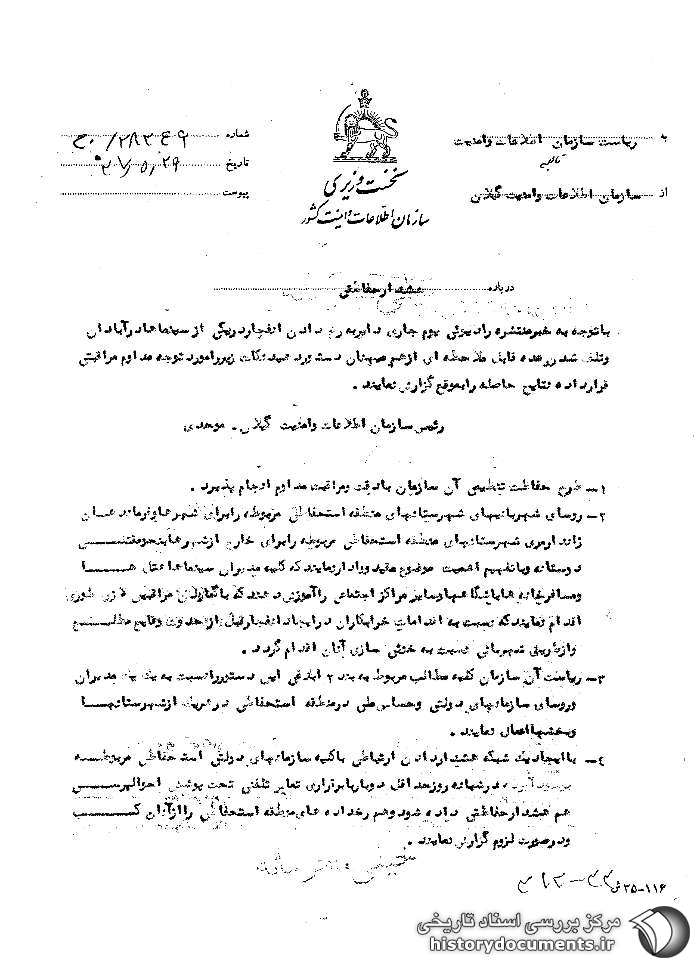 به ریاست سازمان اطلاعات وامنیت
از سازمان اطلاعات وامنیت گیلان
نخست وزیری
سازمان اطلاعات و امنیت کشور
شماره
تاریخ ۳۷/۵/۲۹
پیوست
درباره هشدار حفاظتی
باتوجه به خبر منتشره رادیوئی یوم جاری دایر به رخ دادن انفجار در یکی از سینماهادر آبادان
وتلف شدن عده قابل ملاحظه ای از هم میهنان دستورفرمائید نکات زیررا مورد توجه مداوم مراقبتی
قرارداده ونتایج حاصله را بموقع گزارش نمایند .
رئیس سازمان اطلاعات وامنیت گیلان . موحدی
۱ــ طرح حفاظت تنظیمی آن سازمان بادقت ومراقبت مداوم انجام پذیرد .
۲ــ روسای شهربانیهای شهرستانهای منطقه استحفاظی مربوطه رابرای شهرها وفرماندهان
ژاندارمری شهرستانهای منطقه استحفاظی مربوطه رابرای خارج از شهرها بنحو مقتضی
دوستانه وباتفهیم اهمیت موضوع مقید ووادارنمایند که کلیه مدیران سینماها هتل هـا
ومسافرخانه ها باشگاهها وسایر مراکز اجتماعی راآموزش دهند که باهمکاری مراقبتی لازم طوری
اقدام نمایند که نسبت به اقدامات خرابکاران در ایجاد انفجار قبل از حدوث وقایع مطلـع
وازطریق شهربانی نسبت به خنثی سازی آنان اقدام گردد .
۳ــ ریاست آن سازمان کلیه مطالب مربوط به بند ۲ ابلاغی این دستور رانسبت به یک یک مدیران
وروسای سازمانهای دولتی وحساس ملی در منطقه استحفاظی در هریک از شهرستانهـا
وبخشها اعمال نمایند .
۴ــ باایجاد یک شبکه هشدار دادن ارتباطی باکلیه سازمانهای دولتی استحفاظی مربوطـه
در شبانه روز حداقل دوبار بابرقراری تماس تلفنی تحت پوشش احوالپرســی
هم هشدار حفاظتی داده شود وهم رخداد های منطقه استحفاظی را ازآنان کســب
ودر صورت لزوم گزارش نمایند .
۱۱۶-۲۵ ش
مرکز بررسی اسناد تاریخی
historydocuments.ir